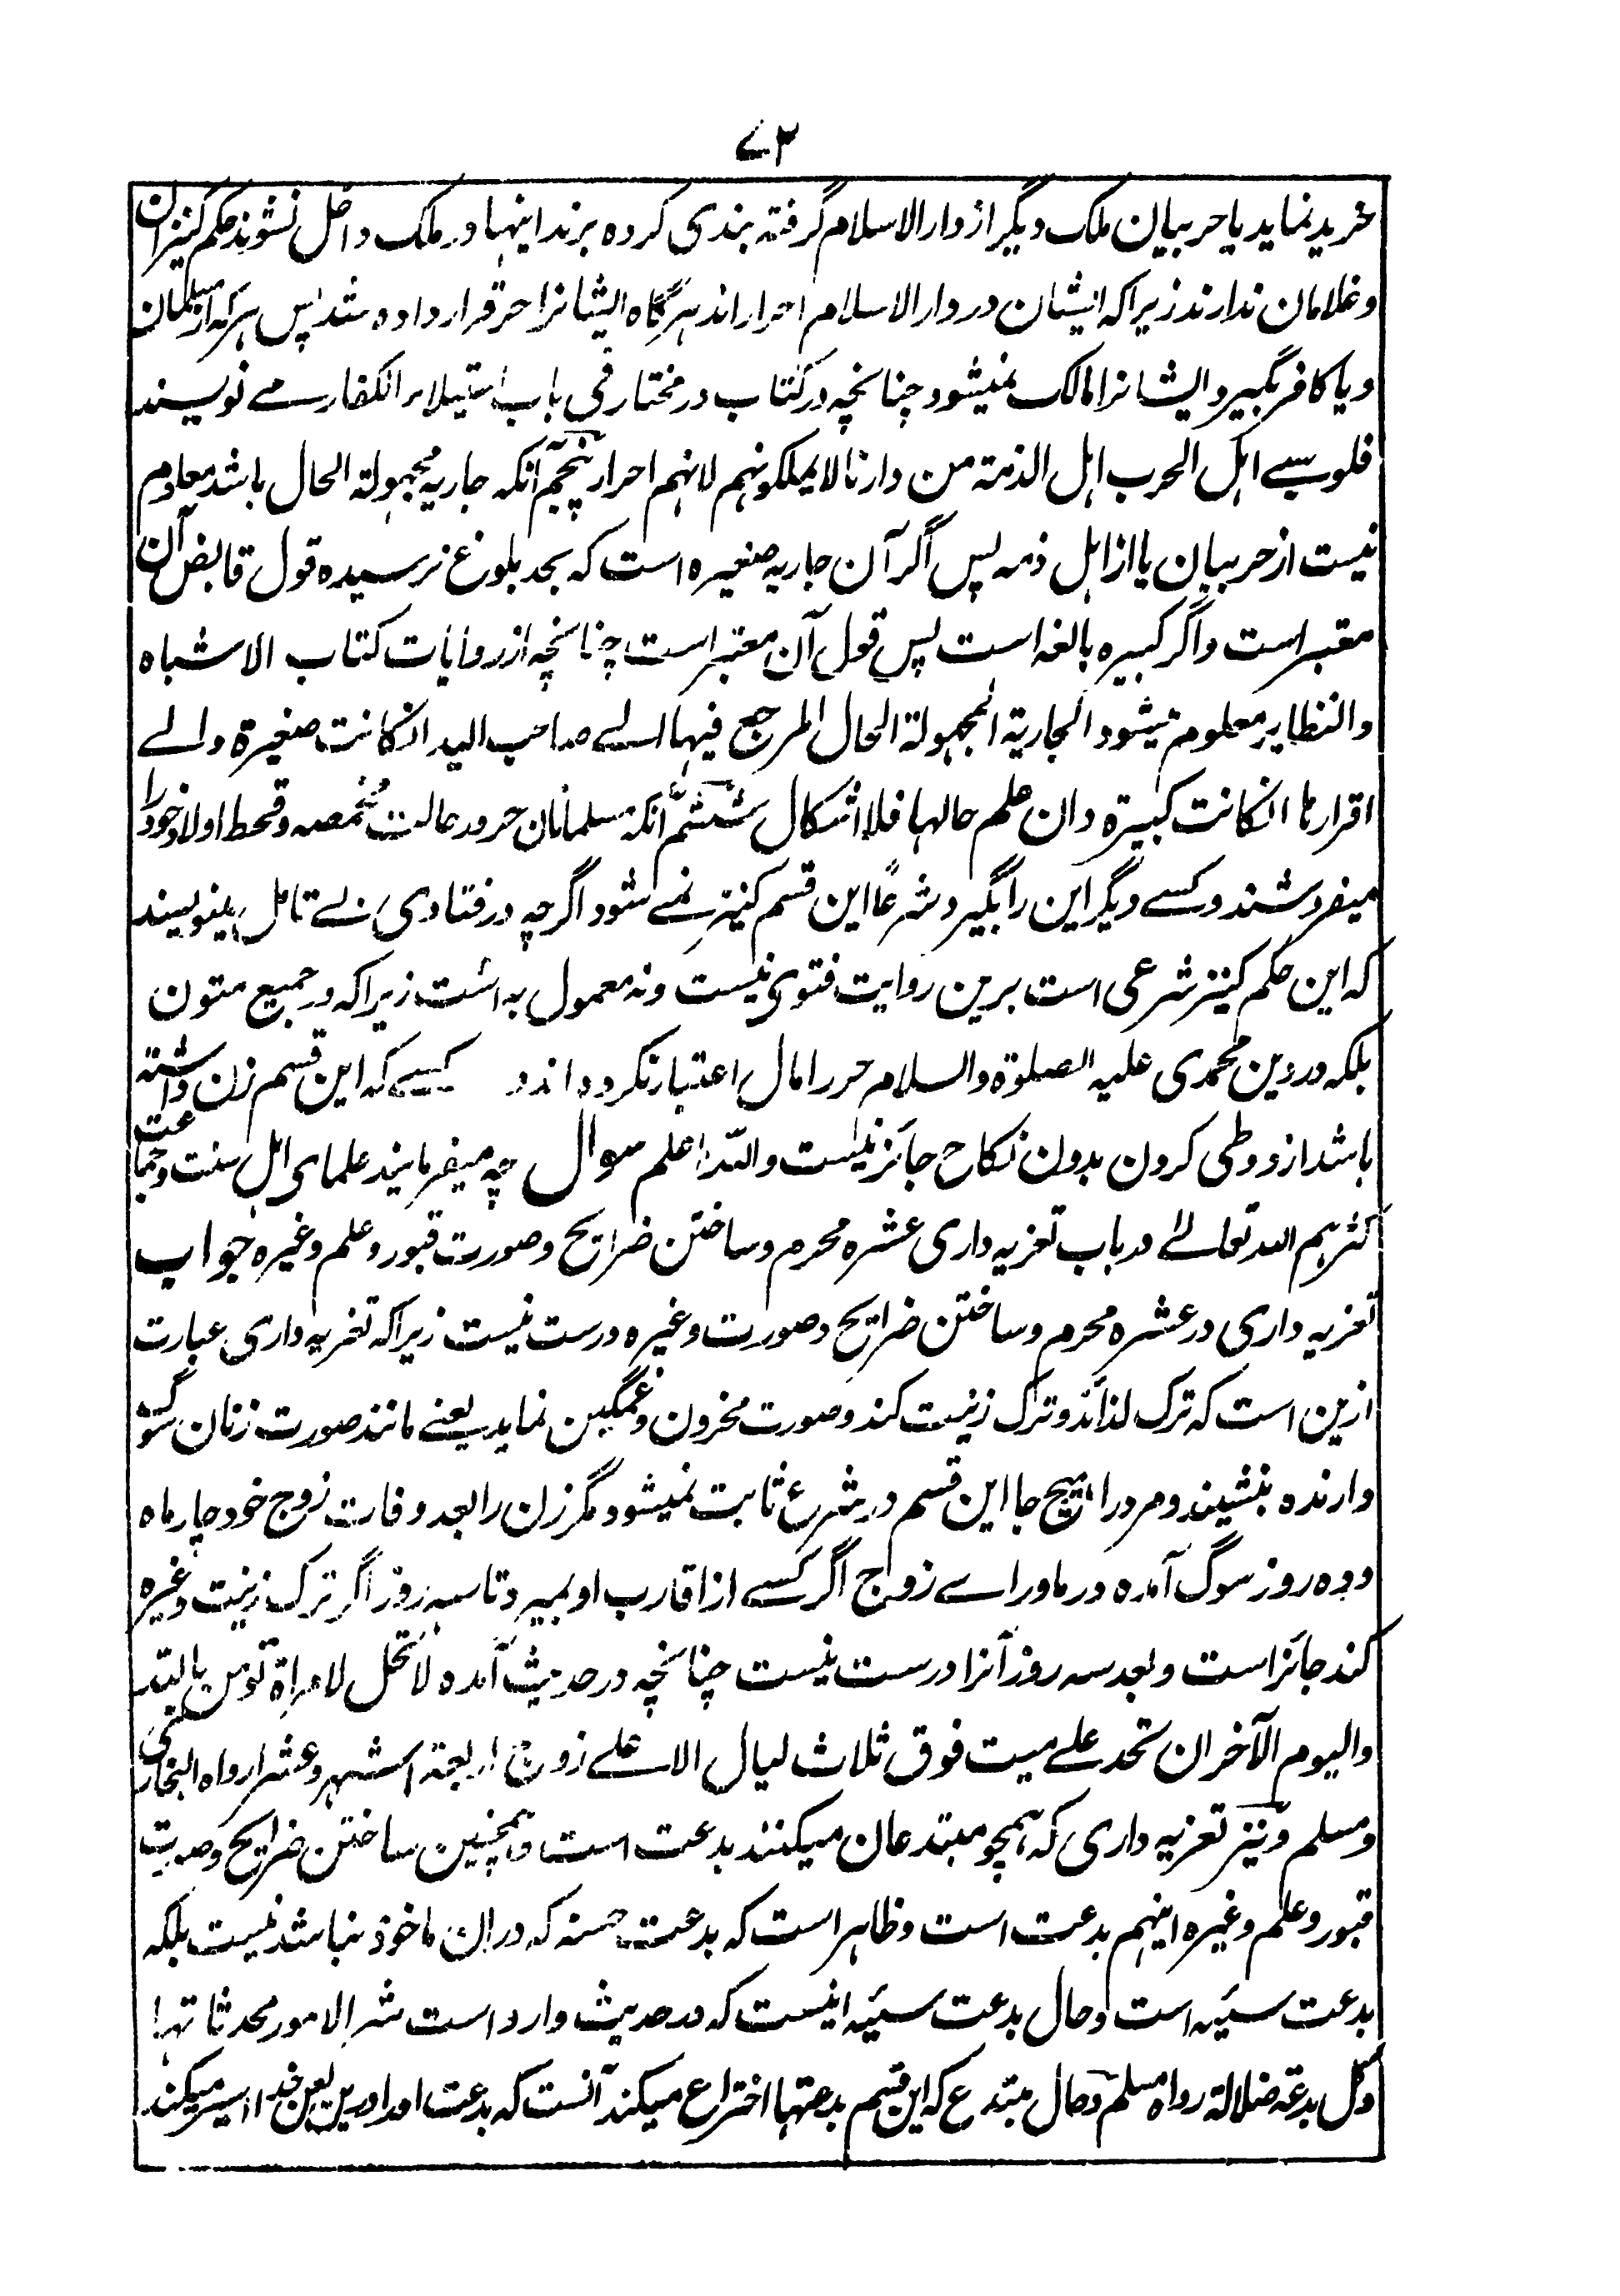 ۷۳
خرید نماید یا حربیان ملک دیگر از دار الاسلام گرفته بندی کرده برند اینها در ملک داخل نشوند حکم کنیزان
و غلامان ندارند زیرا که ایشان در دار الاسلام احرار اند هرگاه ایشانرا حر قرار داده شد پس هر که از مسلمان
و یا کافر بگیرد ایشانرا مالک نمیشود چنانچه در کتاب در مختار فی باب استیلاء الکفار مے نویسند
فلو سبے اهل الحرب اهل الذمة من دارنا لا یملکونهم لانهم احرار پنجم آنکه جاریه مجهولة الحال باشد معلوم
نیست از حربیان یا از اهل ذمه پس اگر آن جاریه صغیره است که بحد بلوغ نرسیده قول قابض آن
معتبر است و اگر کبیره بالغه است پس قول آن معتبر است چنانچه از روایات کتاب الاشباه
والنظایر معلوم میشود الجاریة المجهولة الحال المرجع فیها الے صاحب الید انکانت صغیرة و الے
اقرارها انکانت کبیرة و ان علم حالها فلا اشکال ششم آنکه مسلمانان حر در حالت مخمصه و قحط اولاد خود را
میفروشند و کسے دیگر این را بگیرد شرعًا این قسم کنیز نمے شود اگرچه در فتاوی بے تامل مینویسند
که این حکم کنیز شرعی است برین روایت فتوی نیست و نه معمول به است زیرا که در جمیع متون
بلکه در دین محمدی علیه الصلوة والسلام حر را مال اعتبار نکرده اند کسیے که این قسم زن داشته
باشد از و وطی کردن بدون نکاح جائز نیست والله اعلم سوال چه میفرمایند علمای اهل سنت و جماعت
کثرهم الله تعالے در باب تعزیه داری عشره محرم و ساختن ضرایح و صورت قبور و علم و غیره جواب
تعزیه داری در عشره محرم و ساختن ضرایح و صورت و غیره درست نیست زیرا که تعزیه داری عبارت
ازین است که ترک لذائذ و ترک زینت کند و صورت محزون و غمگین نماید یعنے مانند صورت زنان سوگ
دارنده بنشیند و مرد را هیچ جا این قسم در شرع ثابت نمیشود مگر زن را بعد وفات زوج خود چار ماه
و ده روز سوگ آمده در ماورائے زوج اگر کسے از اقارب او بمیرد تا سه روز اگر ترک زینت و غیره
کند جائز است و بعد سه روز آنرا درست نیست چنانچه در حدیث آمده لا تحل لامراة تؤمن بالله
والیوم الآخر ان تحد علے میت فوق ثلاث لیال الا علے زوج اربعة اشهر و عشرا رواه البخاری
و مسلم و نیز تعزیه داری که همچو مبتدعان میکنند بدعت است و همچنین ساختن ضرایح و صورت
قبور و علم و غیره اینهم بدعت است و ظاهر است که بدعت حسنه که دران ماخوذ نباشد نیست بلکه
بدعت سیئه است و حال بدعت سیئه اینست که در حدیث وارد است شر الامور محدثاتها
و کل بدعة ضلالة رواه مسلم و حال مبتدع که این قسم بدعتها اختراع میکند آنست که بدعت او را در لعن خدا اسیر میکند